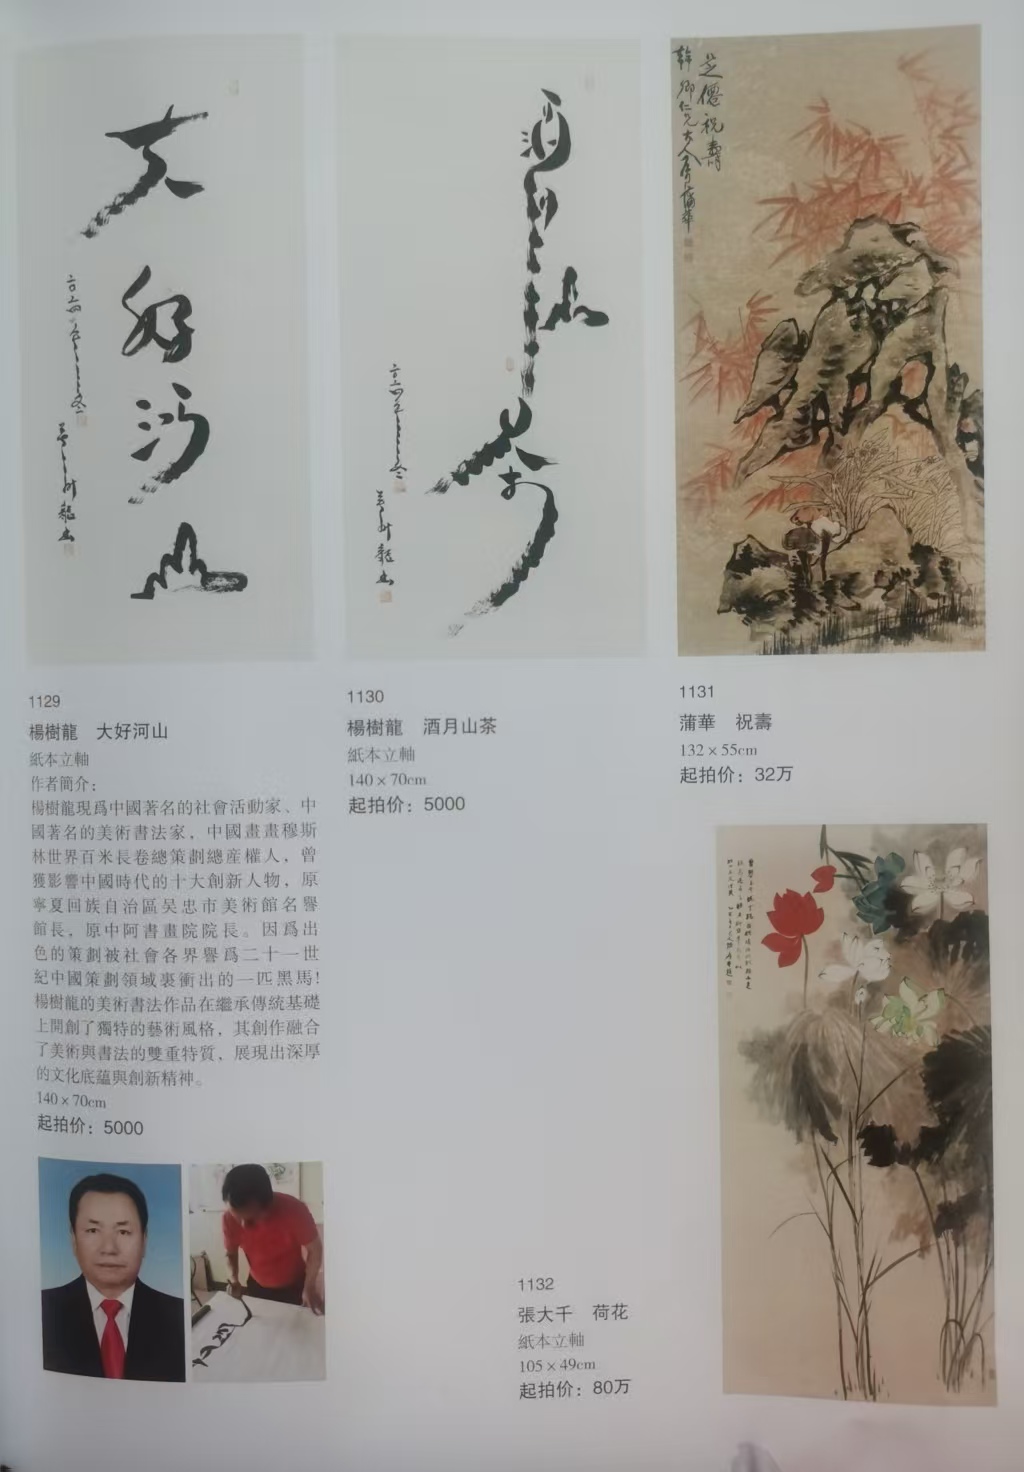 大好河山
二〇二四年冬
酒月山茶
二〇二四年冬
芝僊祝壽
幹卿仁兄大人屬 蒲華
1129
楊樹龍 大好河山
紙本立軸
作者簡介：
楊樹龍現爲中國著名的社會活動家、中
國著名的美術書法家，中國畫畫穆斯
林世界百米長卷總策劃總産權人，曾
獲影響中國時代的十大創新人物，原
寧夏回族自治區吴忠市美術館名譽
館長，原中阿書畫院院長。因爲出
色的策劃被社會各界譽爲二十一世
紀中國策劃領域裏衝出的一匹黑馬!
楊樹龍的美術書法作品在繼承傳統基礎
上開創了獨特的藝術風格，其創作融合
了美術與書法的雙重特質，展現出深厚
的文化底蘊與創新精神。
140×70cm
起拍价：5000
1130
楊樹龍 酒月山茶
紙本立軸
140×70cm
起拍价：5000
1131
蒲華 祝壽
132×55cm
起拍价：32万
1132
張大千 荷花
紙本立軸
105×49cm
起拍价：80万